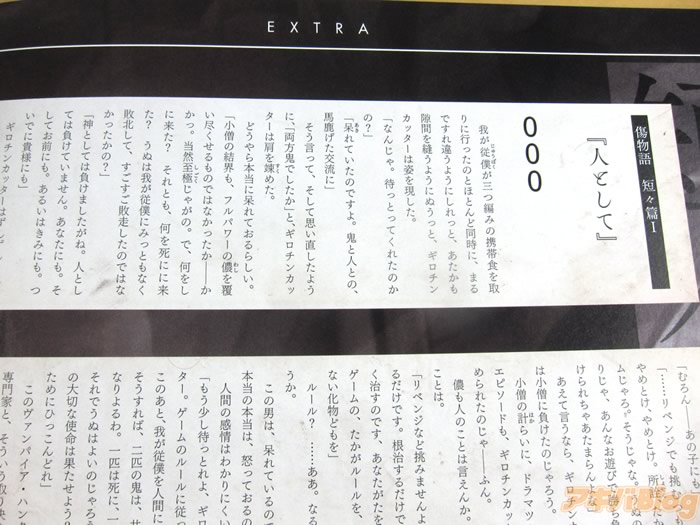 EXTRA
傷物語　短々篇Ⅰ
『人として』
000
我が従僕が三つ編みの携帯食を取
りに行ったのとほとんど同時に、まる
ですれ違うようにしれっと、あたかも
隙間を縫うようにぬうっと、ギロチン
カッターは姿を現した。
「なんじゃ。待っとってくれたのか
の？」
「呆れていたのですよ。鬼と人との、
馬鹿げた交流に」
そう言って、そして思い直したよう
に、「両方鬼でしたか」と、ギロチンカッ
ターは肩を竦めた。
どうやら本当に呆れておるらしい。
「小僧の結界も、フルパワーの儂を覆
い尽くせるものではなかったか――か
かっ。当然至極じゃがの。で、何をし
に来た？　それとも、何を死にに来
た？　うぬは我が従僕にみっともなく
敗北して、すごすご敗走したのではな
かったかの？」
「神としては負けましたがね。人とし
ては負けていません。あなたにも。そ
してお前にも。あるいはきみにも。つ
いでに貴様にも」
ギロチンカッターは
「むろん――あの子も
「……リベンジでも挑も
やめとけ、やめとけ。所詮
ムじゃろ。そうじゃな。
りじゃ、あんなお遊びで勝ち
けられちゃあたまらんよな
あえて言うなら、ギロチン
は小僧に負けたのじゃろう。
小僧の計らいに、ドラマツ
エピソードも、ギロチンカッ
められたのじゃ――ふん。
儂も人のことは言えんか。
ことは。
「リベンジなど挑みませんよ
るだけです。根治するだけで
く治すのです、あなたがたを
ゲームの、たかがルールを、
ない化物どもを」
ルール？　……ああ。なる
この男は、呆れているので
本当の本当は、怒っておるの
人間の感情はわかりにくい
「もう少し待っとれよ、ギロ
ター。ゲームのルールに従っ
このあと、我が従僕を人間に
そうすれば、二匹の鬼は、
なりよるわ。一匹は死に、一
それでうぬはよいのじゃろ
の大切な使命は果たせよう？
ためにひっこんどれ」
このヴァンパイア・ハンタ
専門家と、そういう取り決
アキバBlog